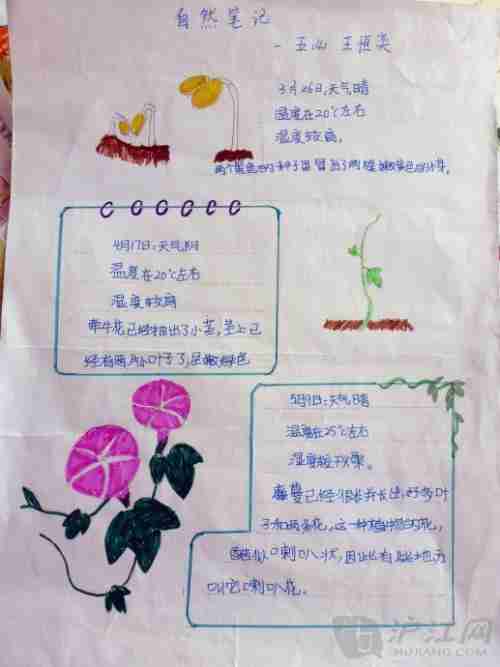 自然笔记
-五 王恒奕
3月26日,天气晴
温度在20℃左右
湿度较高,
两个黄色的种子冒出了两 嫩绿色的小芽,
4月17日:天气阴
温度在20℃左右
湿度较高
牵牛花已经抽出了小茎,茎上已
经有两片小叶子了,呈嫩绿色
5月9日:天气晴
温度在25℃左右
湿度
藤蔓已经很长并长出,好多叶
子和两朵花,这一种植物的花,
酷似口喇叭状,因此有些地方
叫它喇叭花.
沪江网
HUJIANG.COM